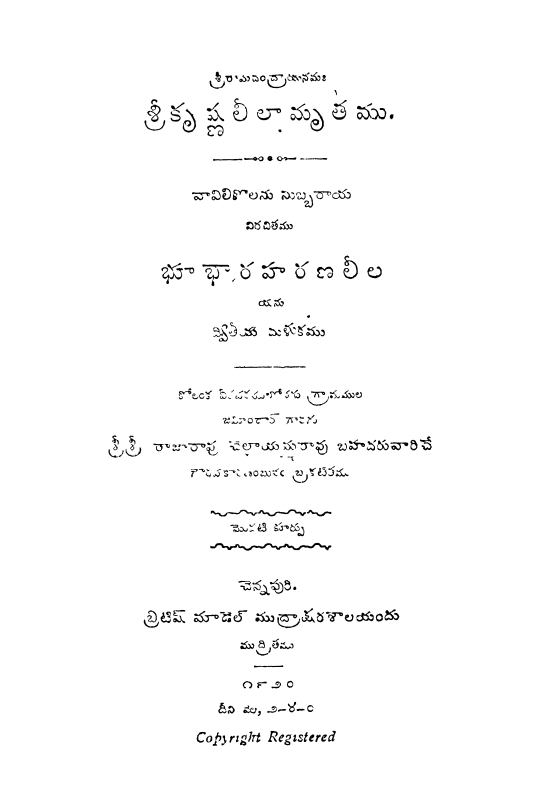 శ్రీరామచంద్రాయనమః
శ్రీకృష్ణలీలామృతము.
వావిలికొలను సుబ్బరాయ
విరచితము
భూభారహరణలీల
యను
ద్వితీయ
గ్రామముల
జమీందార్ గారగు
శ్రీశ్రీ రాజారావు బహదరువారిచే
బ్రకటితము
మొదటి కూర్పు
చెన్నపురి.
బ్రిటిష్ మాడెల్ ముద్రాక్షరశాలయందు
ముద్రితము
౧౯౨౦
దీని వెల, ౨–౪–౦
Copyright Registered